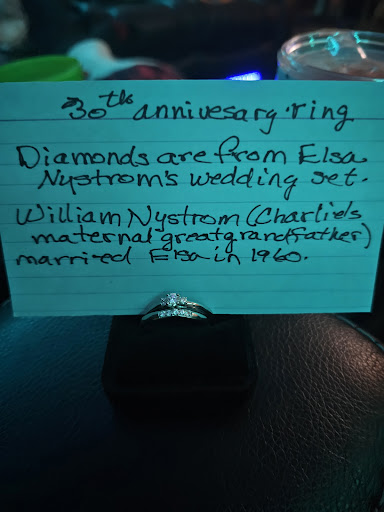 30th annivesary ring
Diamonds are from Elsa
Nystrom's wedding set.
William Nystrom (Charlie's
maternal great grandfather)
married Elsa in 1960.